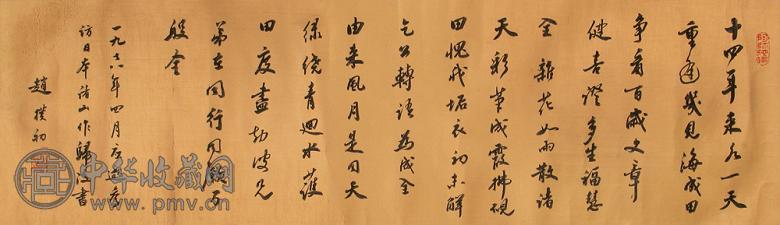 十四年来各一天
重逢几见海成田
争看百岁文章
健喜证多生福慧
全 新花如雨散诸
天 彩笔成霞拂砚
田愧我垢衣初未解
乞公转语为成全
由来风月是同天
绿绕青回水护
田度尽劫波兄
弟在同行同愿
般全
一九七八年四月
访日本诸山作归书
趙樸初
中华收藏网
www.pmv.cn